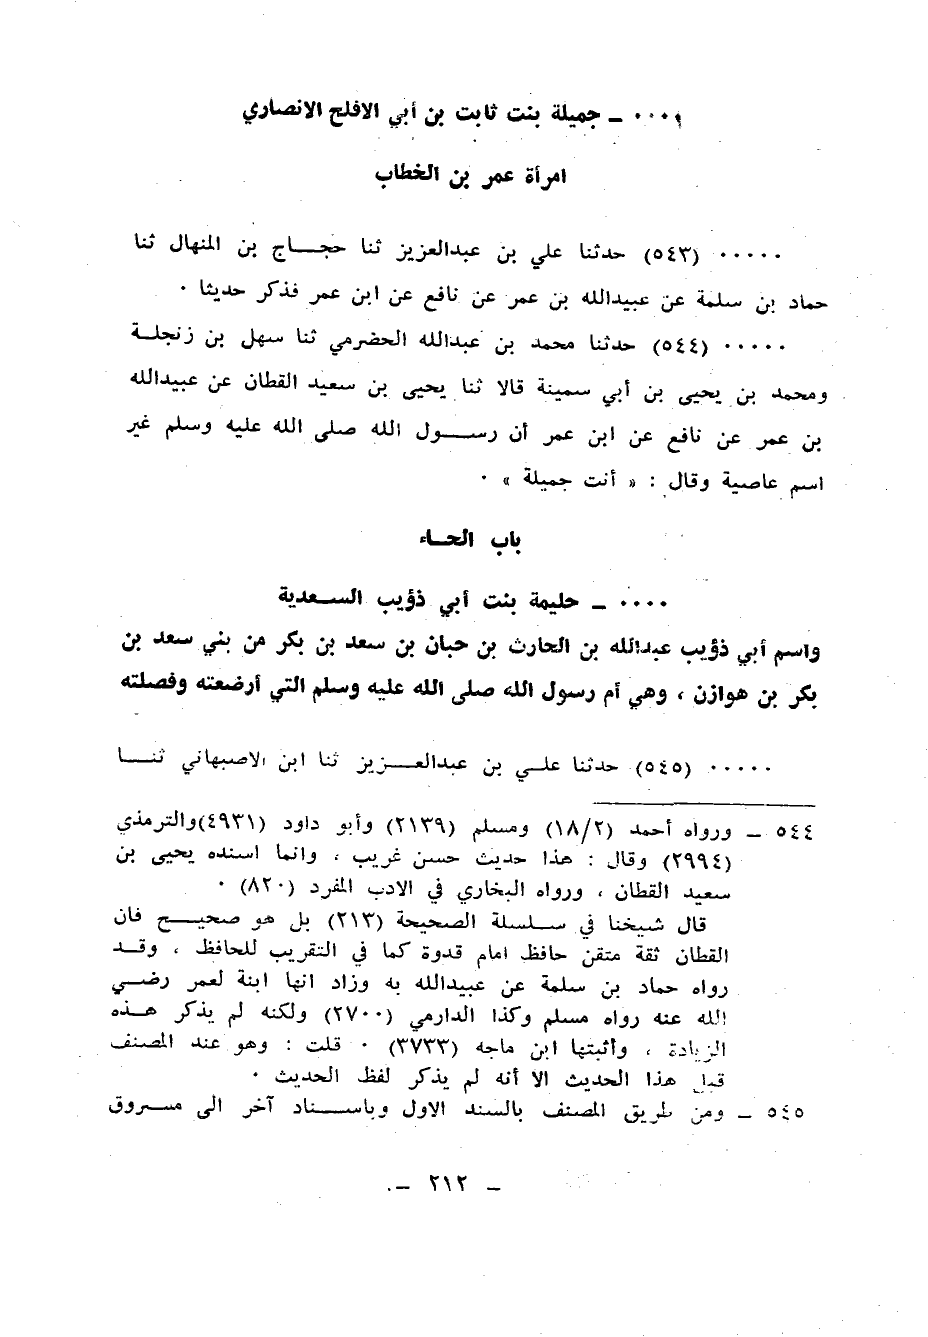 ٠٠٠٠ ــ جميلة بنت ثابت بن أبي الافلح الانصاري
امرأة عمر بن الخطاب
٠٠٠٠٠ (٥٤٣) حدثنا علي بن عبدالعزيز ثنا حجــاج بن المنهال ثنا
حماد بن سلمة عن عبيدالله بن عمر عن نافع عن ابن عمر فذكر حديثا ٠
٠٠٠٠٠ (٥٤٤) حدثنا محمد بن عبدالله الحضرمي ثنا سهل بن زنجلـة
ومحمد بن يحيى بن أبي سمينة قالا ثنا يحيى بن سعيد القطان عن عبيدالله
بن عمر عن نافع عن ابن عمر أن رســول الله صلى الله عليه وسلم غير
اسم عاصية وقال : « أنت جميلة » ٠
باب الحــاء
٠٠٠٠ ــ حليمة بنت أبي ذؤيب الســعدية
واسم أبي ذؤيب عبدالله بن الحارث بن حبان بن سعد بن بكر من بني سعد بن
بكر بن هوازن ، وهي أم رسول الله صلى الله عليه وسلم التي أرضعته وفصلته
٠٠٠٠٠ (٥٤٥) حدثنا علـي بن عبدالعــزيز ثنا ابن الاصبهاني ثنــا
٥٤٤ ــ ورواه أحمد (١٨/٢) ومسلم (٢١٣٩) وأبو داود (٤٩٣١)والترمذي
(٢٩٩٤) وقال : هذا حديث حسن غريب ، وانما اسنده يحيى بن
سعيد القطان ، ورواه البخاري في الادب المفرد (٨٢٠) ٠
قال شيخنا في ســلسلة الصحيحة (٢١٣) بل هو صحيــح فان
القطان ثقة متقن حافظ امام قدوة كما في التقريب للحافظ ، وقـد
رواه حماد بن سلمة عن عبيدالله به وزاد انها ابنة لعمر رضـي
الله عنه رواه مسلم وكذا الدارمي (٢٧٠٠) ولكنه لم يذكر هـذه
الزيادة ، وأثبتها ابن ماجه (٣٧٣٣) ٠ قلت : وهو عند المصنف
قبل هذا الحديث الا أنه لم يذكر لفظ الحديث ٠
٥٤٥ ــ ومن طريق المصنف بالسند الاول وباســناد آخر الى مسروق
ــ ٢١٢ ــ